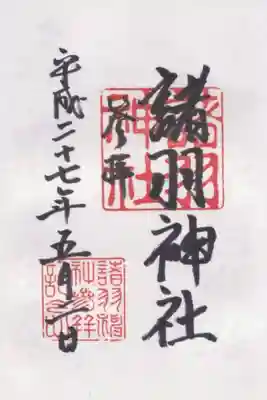 諸羽神社
参拝
平成二十七年五月二日
諸羽
神社